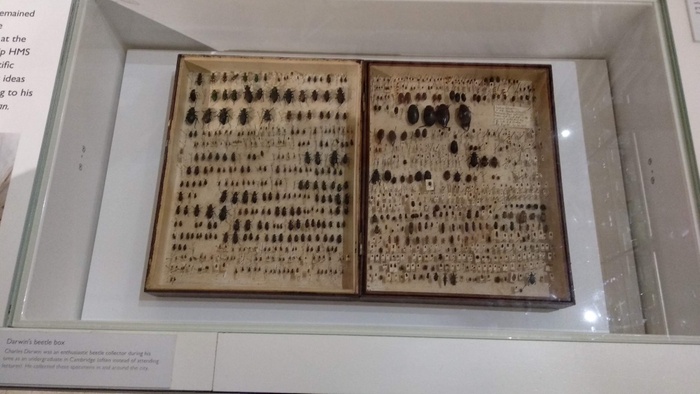 emained
at the
p HMS
tific
ideas
g to his
Darwin's beetle box
Charles Darwin was an enthusiastic beetle collector during his
time as an undergraduate in Cambridge (often instead of attending
lectures!). He collected these specimens in and around the city.